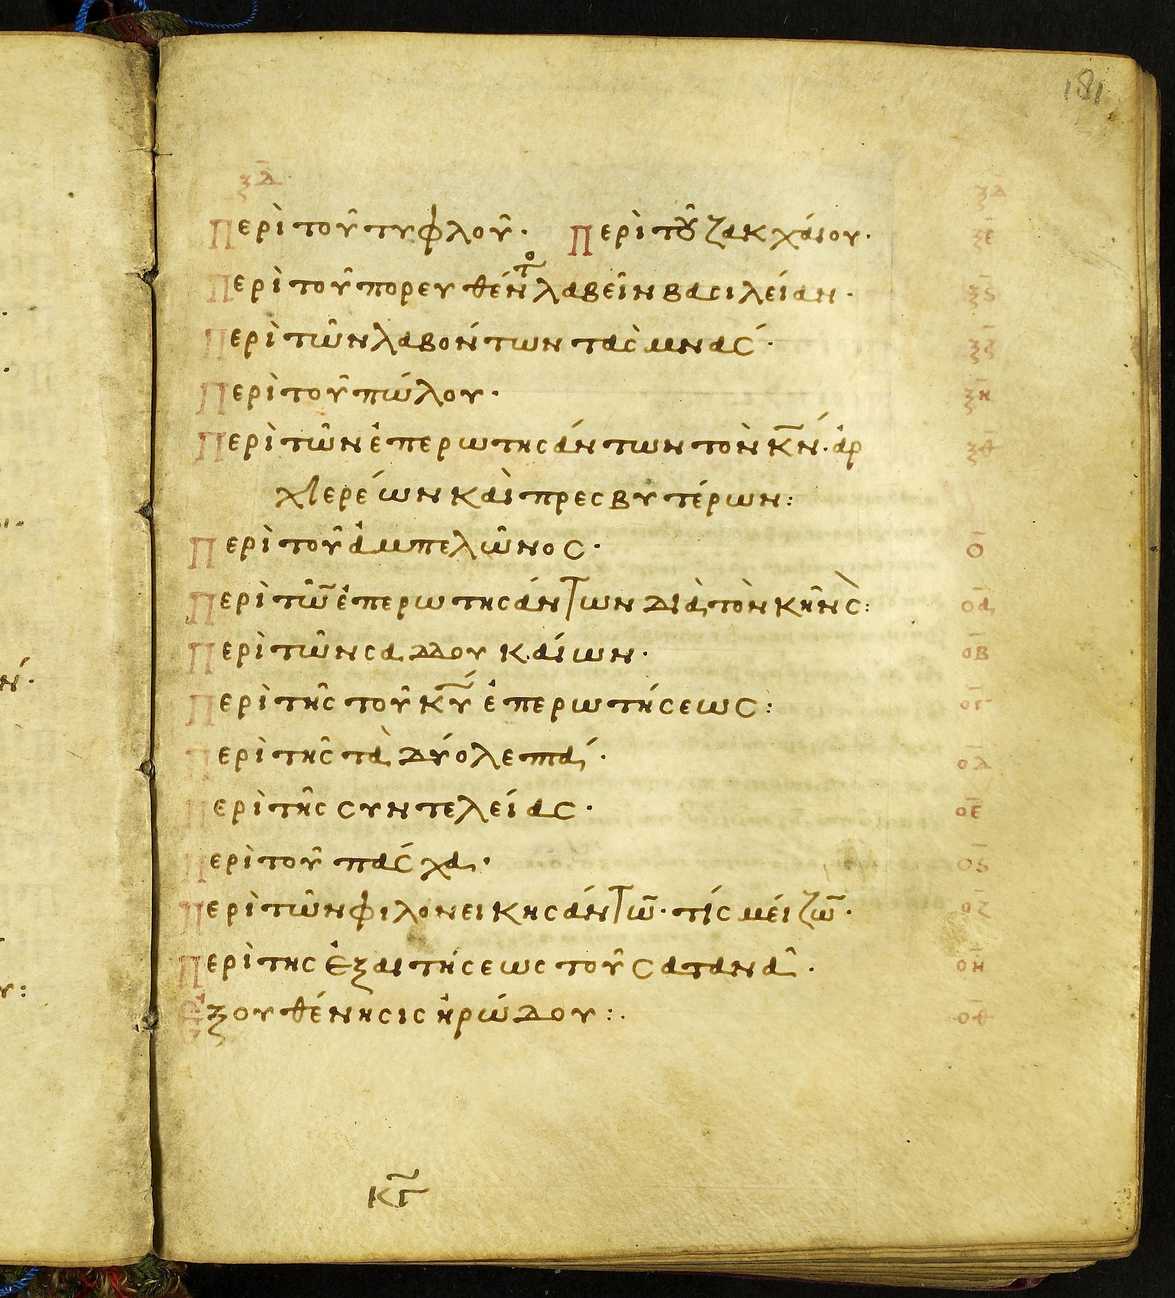 181
ξ̄δ ξ̄δ
Περὶ τοῦ τυφλοῦ· Περὶ τȣ͂ ζακχάιου· ξ̄ε
Περὶ τοῦ πορευθέντο λαβεῖν βασιλείαν· ξ̄ς
Περὶ τῶν λαβόντων τὰς μνάς· ξ̄ζ
Περὶ τοῦ πώλου· ξ̄η
Περὶ τῶν ἐπερωτησάντων τὸν κ̄ν̄· ἀρ ξ̄θ
χϊερέων καὶ πρεσβυτέρων:
Περὶ τοῦ ἀμπελῶνος· ō
Περὶ τῶ̄ ἐπερωτησάντων διὰ τὸν κῆνς: ο̄α
Περὶ τῶν σαδδουκαίων· ο̄β
Περὶ τῆς τοῦ κ̄ῡ ἐπερωτήσεως: ο̄γ
Περὶ τῆς τὰ δύο λεπτά· ο̄δ
Περὶ τῆς συντελείας· ο̄ε
Περὶ τοῦ πάσχα· ο̄ς
Περὶ τῶν φιλονεικησάντω̄· τίς μείζω̄· ο̄ζ
Περὶ της ἐξαιτήσεως τοῦ σατανᾶ· ο̄η
Ἐξουθένησις ἡρώδου:· ο̄θ
κ̄γ